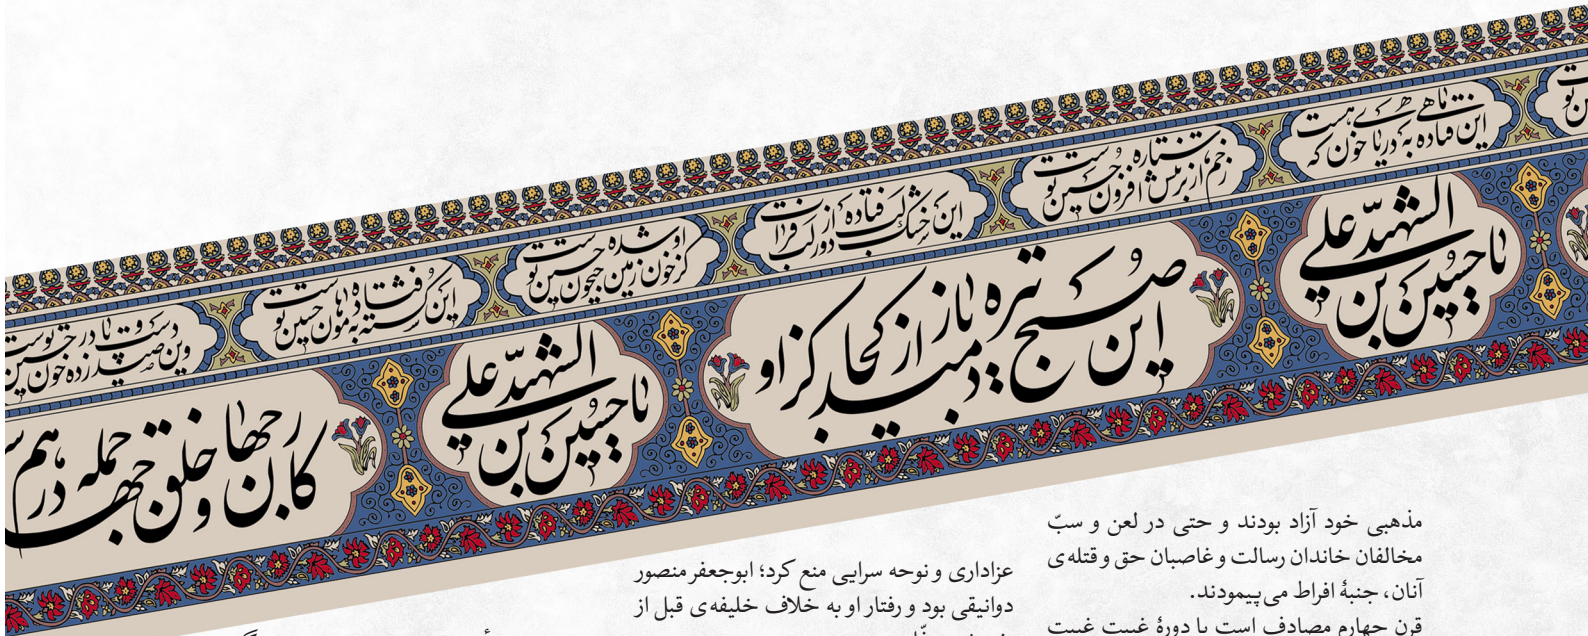 این ماهی فتاده به دریای خون که هست
زخم از ستاره بر تنش افزون حسین توست
این خشک لب فتاده دور از لب فرات
کز خون او زمین شده جیحون حسین توست
این کشته فتاده به هامون حسین توست
وین صید دست و پا زده در خون حسین توست
یا حسین بن علی الشهید
این صبح تیره باز دمید از کجا کزاو
یا حسین بن علی الشهید
کار جهان و خلق جهان جمله در هم
مذهبی خود آزاد بودند و حتی در لعن و سبّ
مخالفان خاندان رسالت و غاصبان حق و قتله‌ی
آنان، جنبۀ افراط می‌پیمودند.
قرن چهارم مصادف است با دورۀ غیبت غیبت
عزاداری و نوحه سرایی منع کرد؛ ابوجعفر منصور
دوانیقی بود و رفتار او به خلاف خلیفه‌ی قبل از